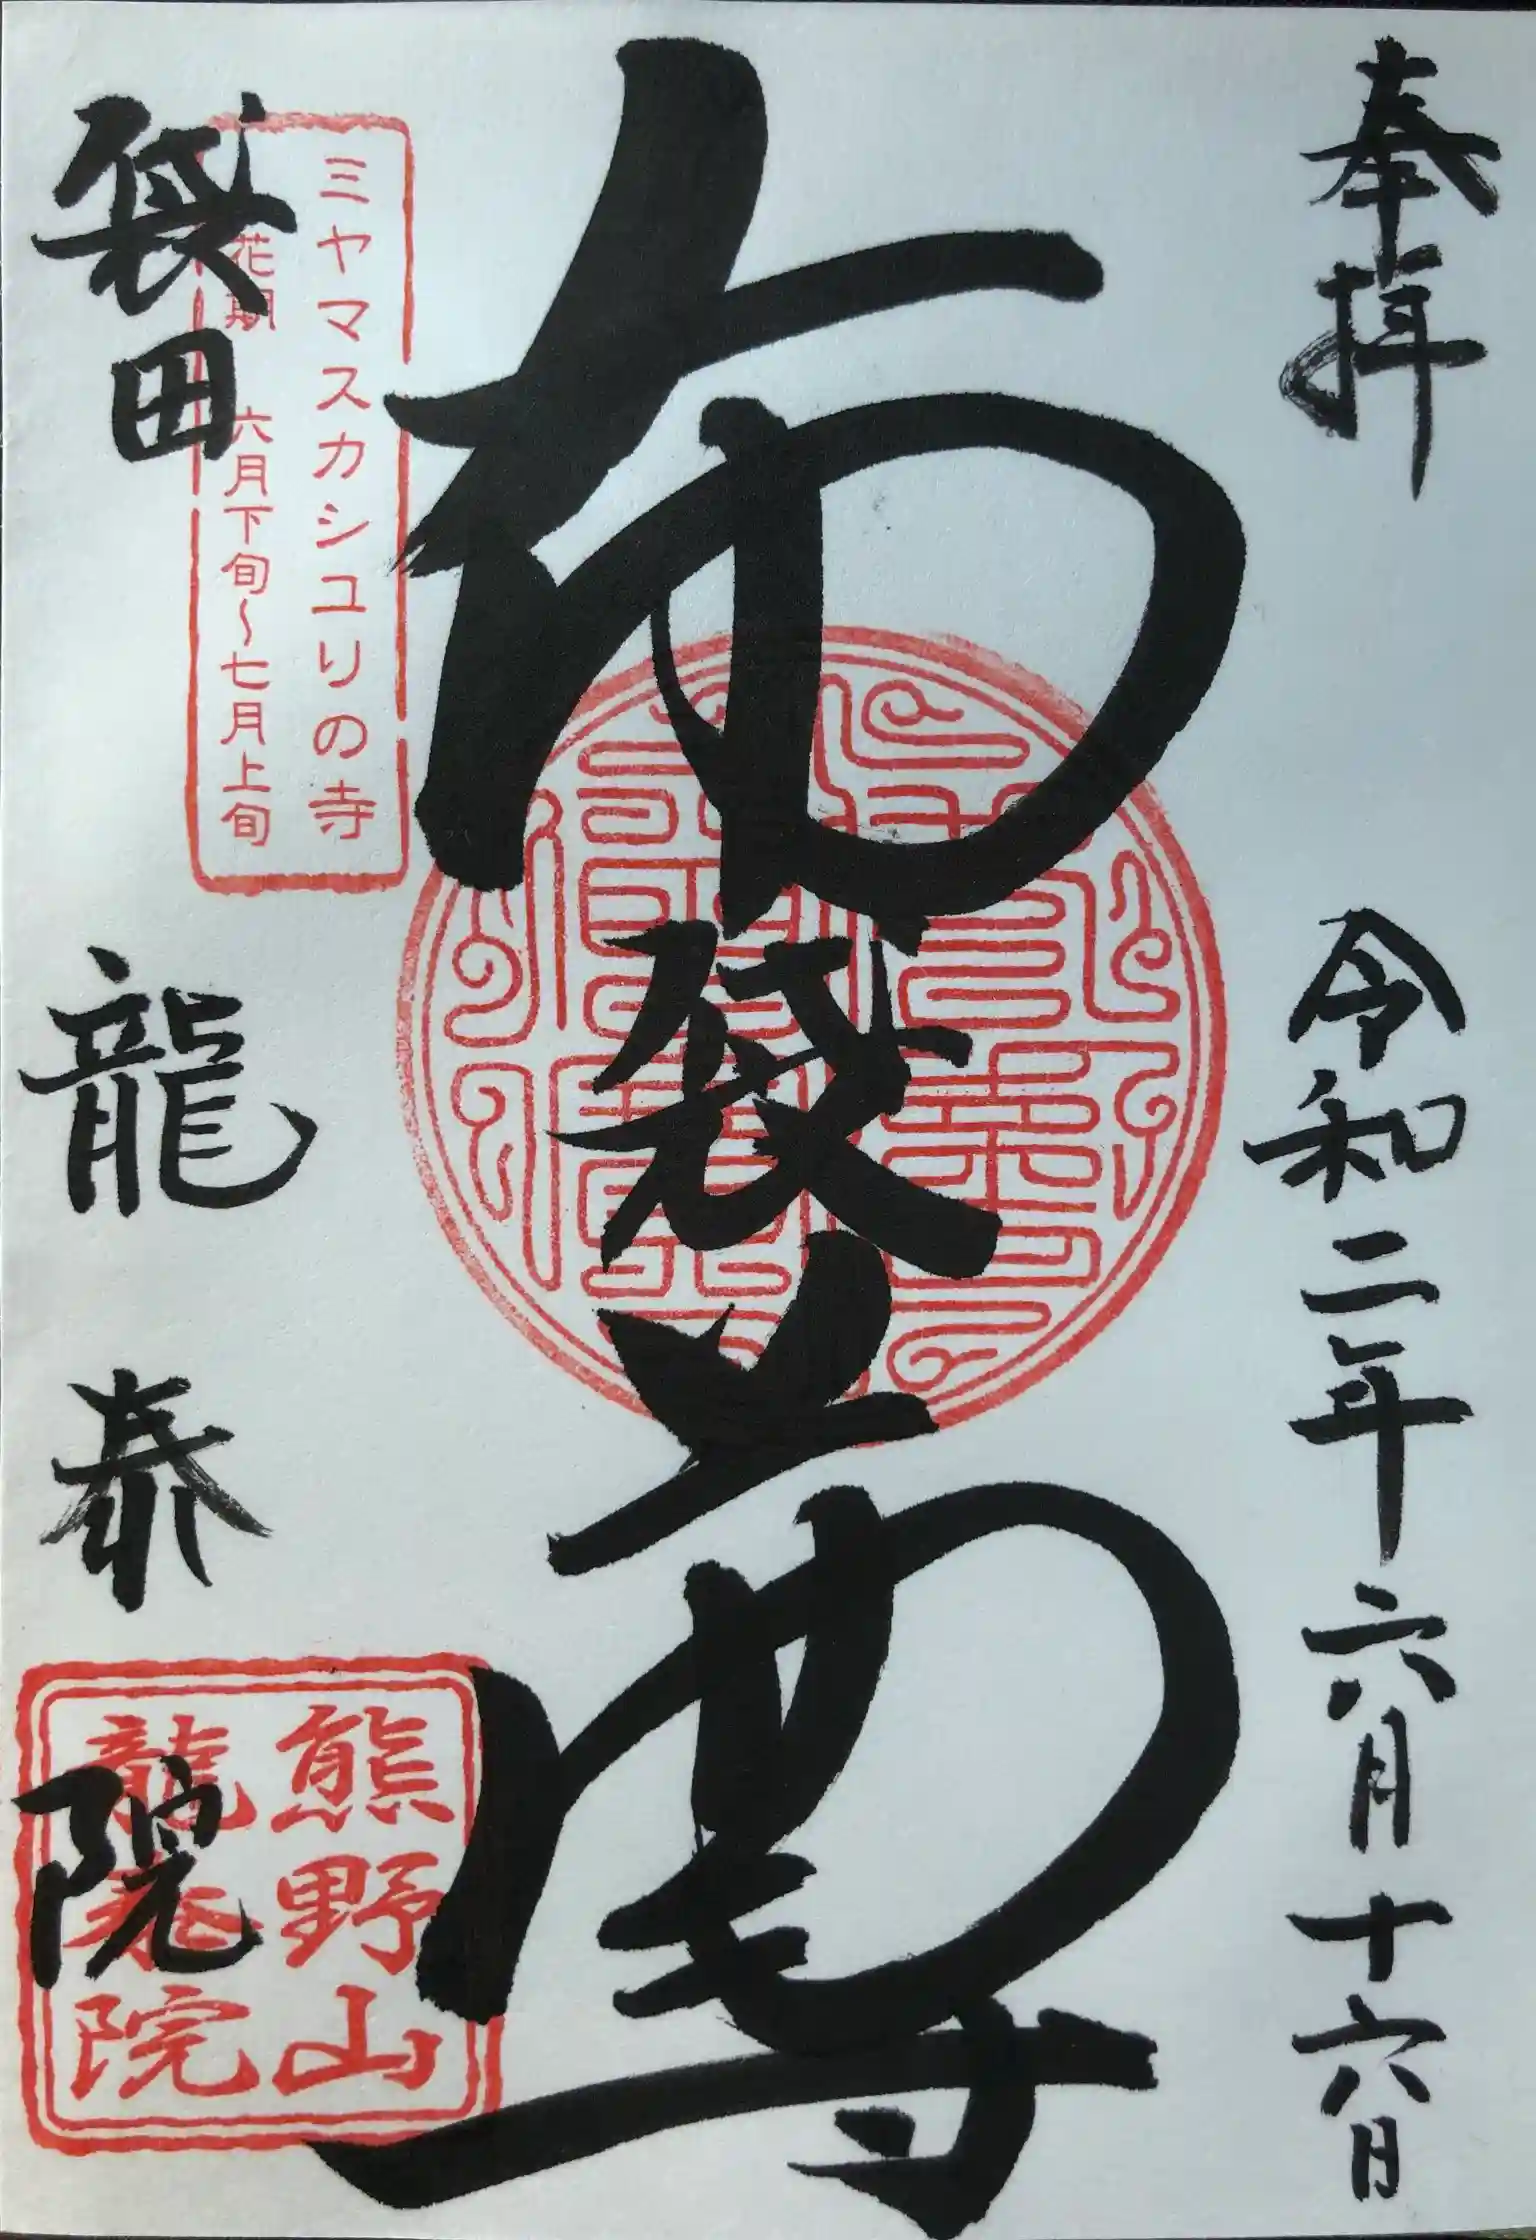 奉拝
令和二年六月十六日
布袋尊
ミヤマスカシユリの寺
花期 六月下旬～七月上旬
袋田 龍泰院
熊野山
龍泰院